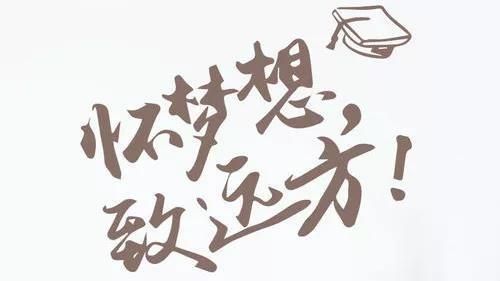 怀梦想，
致远方！